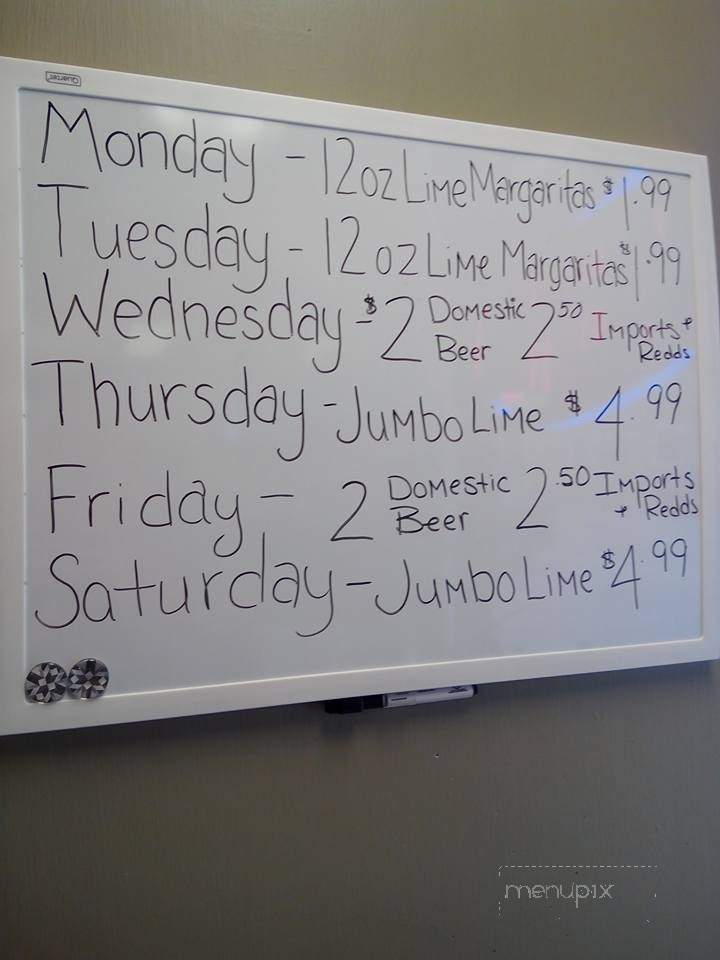 Quartet
Monday - 12oz Lime Margaritas $1.99
Tuesday - 12oz Lime Margaritas $1.99
Wednesday - $2 Domestic Beer 2.50 Imports + Redds
Thursday - Jumbo Lime $4.99
Friday - 2 Domestic Beer 2.50 Imports + Redds
Saturday - Jumbo Lime $4.99
menupix